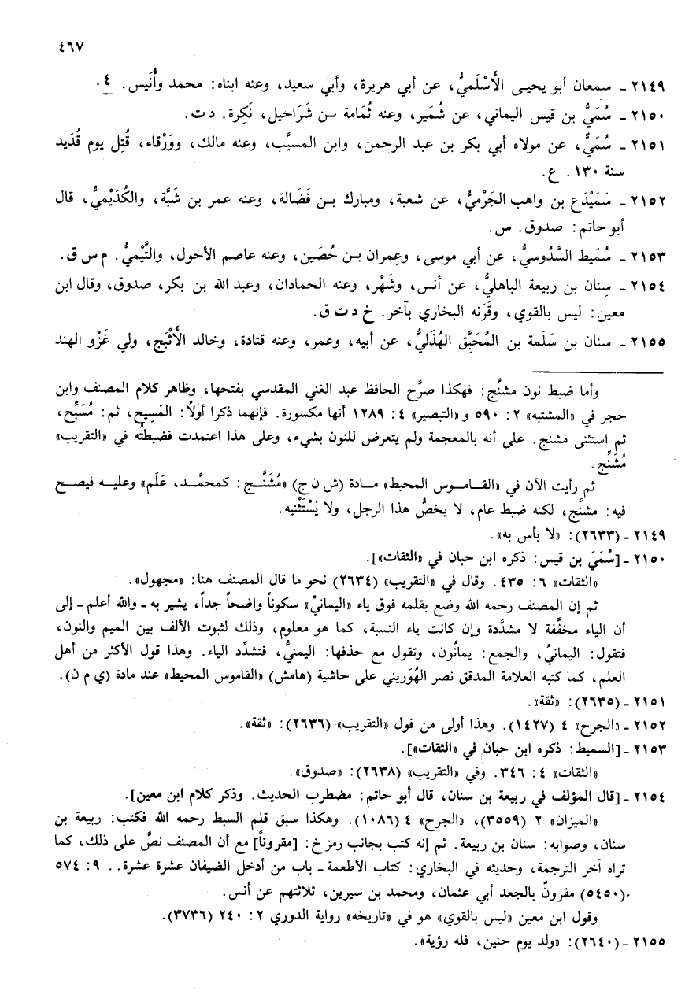 ٤٦٧
٢١٤٩ ـ سمعان أبو يحيى الأَسْلَميُّ، عن أبي هريرة، وأبي سعيد، وعنه ابناه: محمد وأُنَيس. ٤.
٢١٥٠ ـ سُمَيُّ بن قيس اليماني، عن شُمَير، وعنه ثُمَامة بن شَرَاحيل، نَكِرة. د ت.
٢١٥١ ـ سُمَيٌّ، عن مولاه أبي بكر بن عبد الرحمن، وابن المسيَّب، وعنه مالك، ووَرْقاء، قُتِل يوم قُدَيد
سنة ١٣٠. ع.
٢١٥٢ ـ سَمَيْدَع بن واهب الجَرْميُّ، عن شعبة، ومبارك بن فَضَالة، وعنه عمر بن شَبَّة، والكُدَيْميُّ، قال
أبو حاتم: صدوق. س.
٢١٥٣ ـ سُمَيط السَّدُوسيُّ، عن أبي موسى، وعِمران بن حُصَين، وعنه عاصم الأحول، والتَّيْميُّ. م س ق.
٢١٥٤ ـ سِنان بن ربيعة الباهليُّ، عن أنس، وشَهْر، وعنه الحمادان، وعبد الله بن بكر، صدوق، وقال ابن
معين: ليس بالقوي، وقَرَنه البخاري بآخر. خ د ت ق.
٢١٥٥ ـ سنان بن سَلَمة بن المُحَبَّق الهُذَليُّ، عن أبيه، وعمر، وعنه قتادة، وخالد الأَثْبَج، ولي غَزْو الهند
وأما ضبط نون مشنَّج: فهكذا صرَّح الحافظ عبد الغني المقدسي بفتحها، وظاهر كلام المصنف وابن
حجر في «المشتبه» ٢: ٥٩٠ و«التبصير» ٤: ١٢٨٩ أنها مكسورة. فإنهما ذكرا أولاً: المَسِيح، ثم: مُسَبِّح،
ثم استثنى مشنج. على أنه بالمعجمة ولم يتعرض للنون بشيء، وعلى هذا اعتمدت فضبطته في «التقريب»
مُشَنِّج.
ثم رأيت الآن في «القاموس المحيط» مادة (ش ن ج) «مُشَنَّج: كمحمَّد، عَلَم» وعليه فيصح
فيه: مشنَّج، لكنه ضبط عام، لا يخصُّ هذا الرجل، ولا يَسْتَثْنيه.
٢١٤٩ ـ (٢٦٣٣): «لا بأس به».
٢١٥٠ ـ [سُمَيّ بن قيس: ذكره ابن حبان في «الثقات»].
«الثقات» ٦: ٤٣٥. وقال في «التقريب» (٢٦٣٤) نحو ما قال المصنف هنا: «مجهول».
ثم إن المصنف رحمه الله وضع بقلمه فوق ياء «اليمانيْ» سكوناً واضحاً جداً، يشير به ـ والله أعلم ـ إلى
أن الياء مخفَّفة لا مشدَّدة وإن كانت ياء النسبة، كما هو معلوم، وذلك لثبوت الألف بين الميم والنون،
فتقول: اليمانيْ، والجمع: يمانُون، وتقول مع حذفها: اليمنيُّ، فتشدِّد الياء. وهذا قول الأكثر من أهل
العلم، كما كتبه العلامة المدقق نصر الهُوَريني على حاشية (هامش) «القاموس المحيط» عند مادة (ي م ن).
٢١٥١ ـ (٢٦٣٥): «ثقة».
٢١٥٢ ـ «الجرح» ٤ (١٤٢٧). وهذا أولى من قول «التقريب» (٢٦٣٦): «ثقة».
٢١٥٣ ـ [السميط: ذكره ابن حبان في «الثقات»].
«الثقات» ٤: ٣٤٦. وفي «التقريب» (٢٦٣٨): «صدوق».
٢١٥٤ ـ [قال المؤلف في ربيعة بن سنان، قال أبو حاتم: مضطرب الحديث. وذكر كلام ابن معين].
«الميزان» ٢ (٣٥٥٩)، «الجرح» ٤ (١٠٨٦). وهكذا سبق قلم السبط رحمه الله فكتب: ربيعة بن
سنان، وصوابه: سنان بن ربيعة. ثم إنه كتب بجانب رمز خ: [مقروناً] مع أن المصنف نصَّ على ذلك، كما
تراه آخر الترجمة، وحديثه في البخاري: كتاب الأطعمة ـ باب من أدخل الضيفان عشرة عشرة.. ٩: ٥٧٤
(٥٤٥٠) مقرونٌ بالجعد أبي عثمان، ومحمد بن سيرين، ثلاثتهم عن أنس.
وقول ابن معين «ليس بالقوي» هو في «تاريخه» رواية الدوري ٢: ٢٤٠ (٣٧٣٦).
٢١٥٥ ـ (٢٦٤٠): «ولد يوم حنين، فله رؤية».